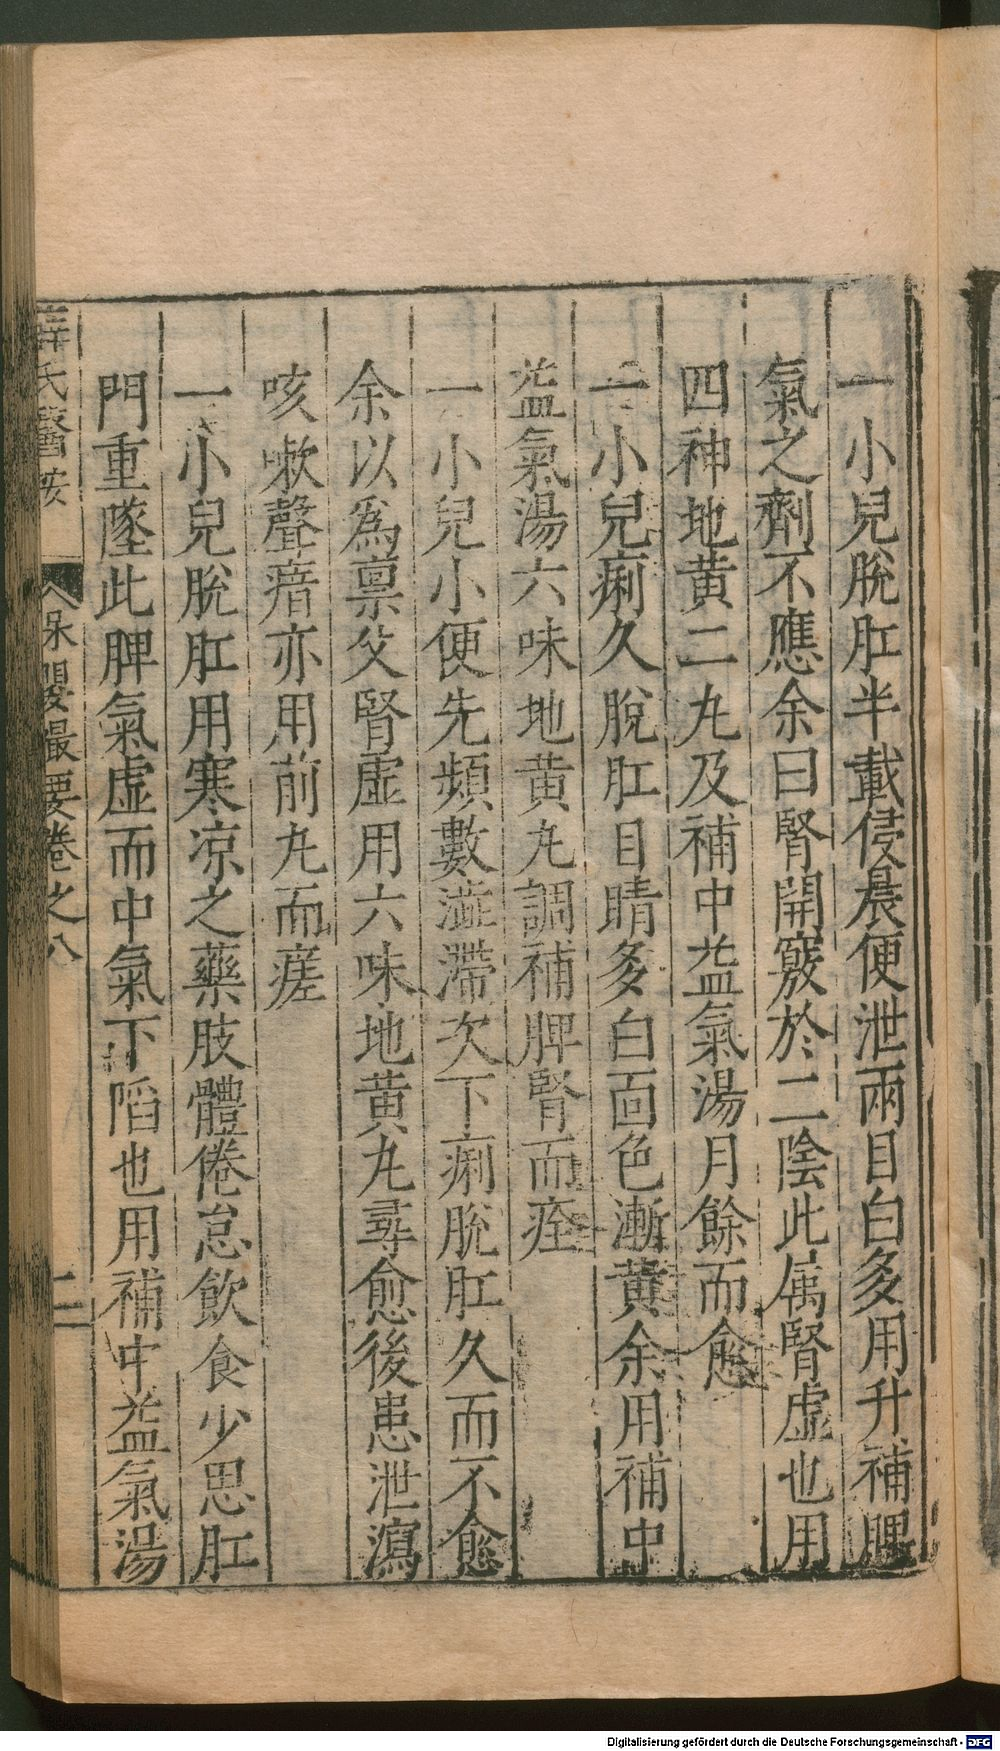 一小兒脫肛半載侵晨便泄兩目白多用升補脾
氣之劑不應余曰腎開竅於二陰此属腎虛也用
四神地黄二丸及補中益氣湯月餘而愈
一小兒痢久脫肛目睛多白面色漸黄余用補中
益氣湯六味地黄丸調補脾腎而痊
一小兒小便先頻數澁滯次下痢脫肛久而不愈
余以為禀父腎虛用六味地黄丸尋愈後患泄瀉
咳嗽聲瘖亦用前丸而瘥
一小兒脫肛用寒凉之藥肢體倦怠飲食少思肛
門重墜此脾氣虛而中氣下陷也用補中益氣湯
薛氏醫按
保嬰撮要卷之八
二
Digitalisierung gefördert durch die Deutsche Forschungsgemeinschaft - DFG